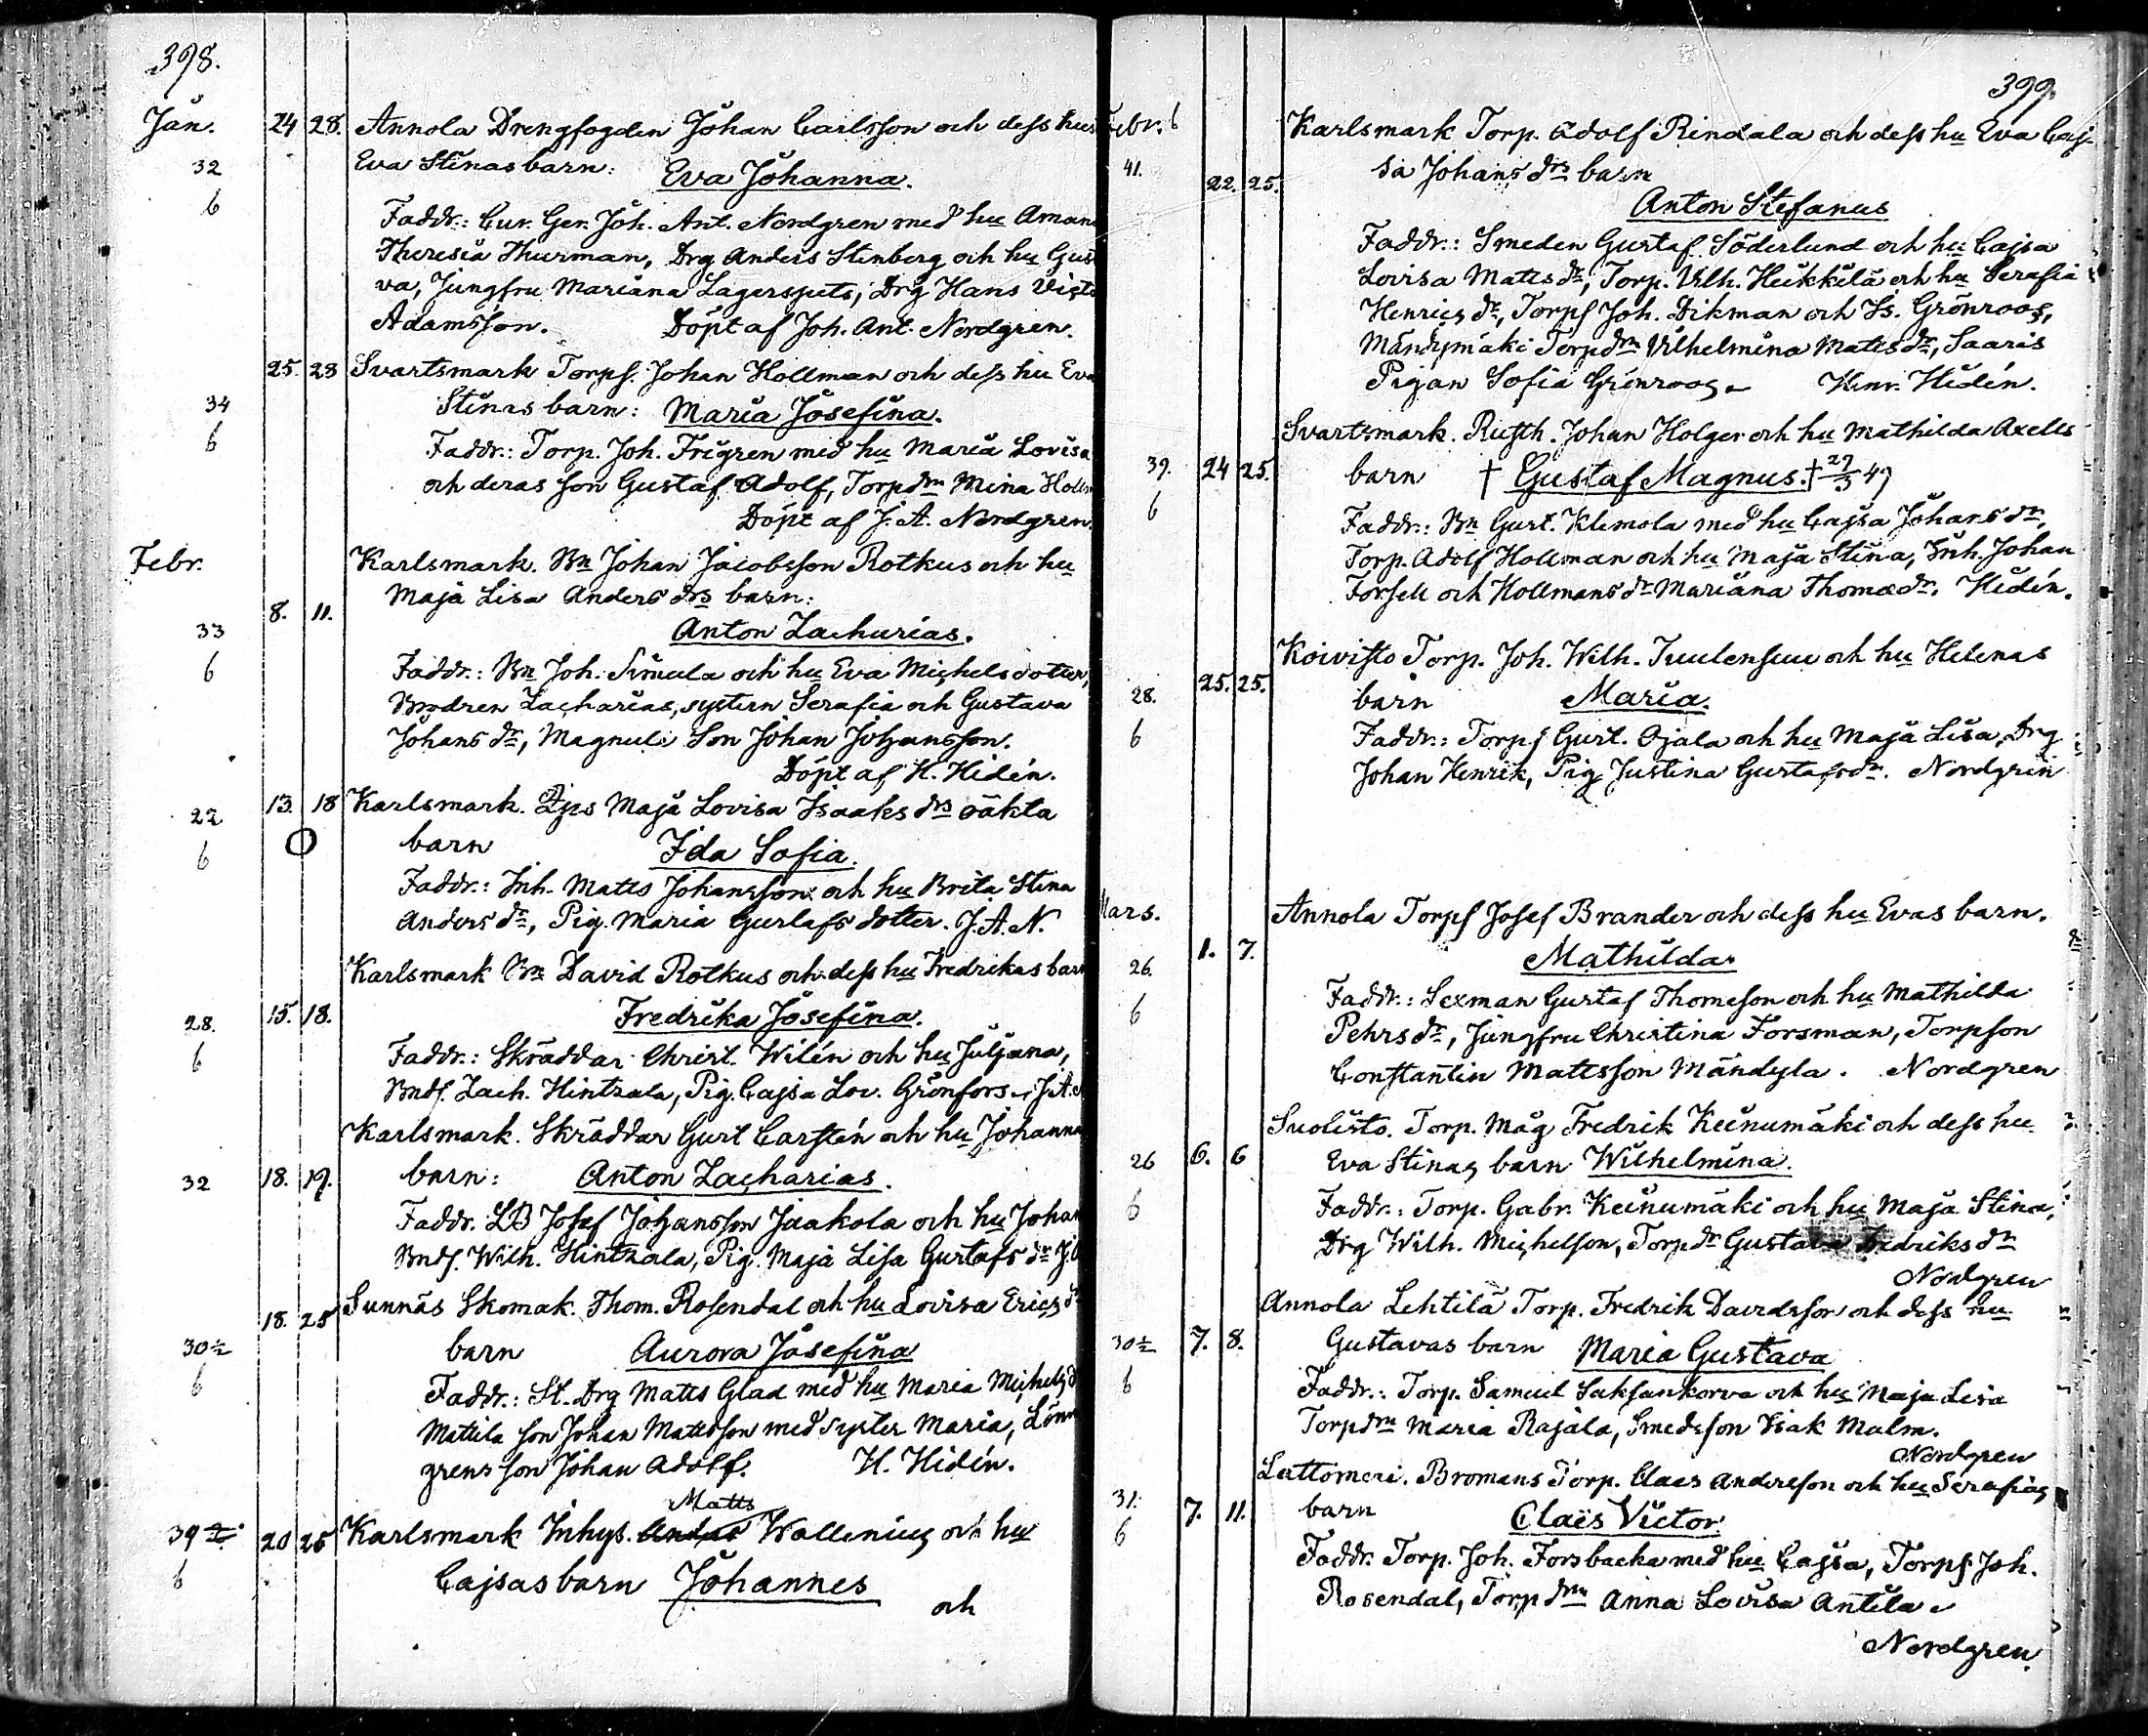 398.
Jan. 24 28. Annola Drengfogden Johan Carlsson och dess hus
32 Eva Stinas barn: Eva Johanna.
6 Faddr.: Cur. Ger. Joh. Ant. Nordgren med hu Aman
Theresia Thurman, Drg Anders Stenberg och hu Gust
va, Jungfru Mariana Lagerspets, Drg Hans Victo
Adamsson. Döpt af Joh. Ant. Nordgren.
25. 28 Svartsmark Torps. Johan Hollman och dess hu Eva
34 Stinas barn: Maria Josefina.
6 Faddr.: Torp. Joh. Frigren med hu Maria Lovisa
och deras son Gustaf Adolf, Torpdrn Mina Hollm
Döpt af J. A. Nordgren.
Febr. Karlsmark. Bn Johan Jacobsson Rotkus och hu
8. 11. Maja Lisa Anders drs barn:
33 Anton Zacharias.
6 Faddr.: Bn Joh. Simula och hu Eva Michelsdotter,
Brodren Zacharias, systern Serafia och Gustava
Johans dr, Magnula Son Johan Johansson.
Döpt af H. Hidén.
22 13. 18 Karlsmark. Pigs Maja Lovisa Isaaks drs oäkta
6 barn Ida Sofia.
Faddr.: Inh. Matts Johansson och hu Brita Stina
Anders dr, Pig. Maria Gustafs dotter. J. A. N.
Karlsmark Bn David Rotkus och dess hu Fredrikas barn
28. 15. 18. Fredrika Josefina.
6 Faddr.: Skräddar Christ. Wilén och hu Juljana,
Bnds. Zach. Hintzala, Pig. Cajsa Lov. Grönfors. J. A. N
Karlsmark. Skräddar Gust Carstén och hu Johanna
32 18. 19. barn: Anton Zacharias.
Faddr. LB Josef Johansson Jaakola och hu Johan
Bnds. Wilh. Hintzala, Pig. Maja Lisa Gustafs dr J.
18. 25 Sunnäs Skomak. Thom. Rosendal och hu Lovisa Erics d
30 barn Aurora Josefina
6 Faddr.: St. Drg Matts Glad med hu Maria Michels d
Mattila son Johan Mattsson med syster Maria, Lönn
grens son Johan Adolf. H. Hidén.
Matts
39 20 25 Karlsmark Inhys. Anders Wallenius och hu
6 Cajsas barn Johannes
och
399.
Febr. 6 Karlsmark Torp. Adolf Rindala och dess hu Eva Caj-
41. 22. 25. sa Johans drs barn
Anton Stefanus
Faddr.: Smeden Gustaf Söderlund och hu Cajsa
Lovisa Matts dr, Torp. Vilh. Heikkilä och hu Serafia
Henrics dr, Torps Joh. Dikman och Is. Grönroos,
Mändymäki Torpdrn Vilhelmina Matts dr, Saaris
Pigan Sofia Grönroos. Henr. Hidén.
Svartsmark. Rusth. Johan Holger och hu Mathilda Axels
39. 24 25. barn † Gustaf Magnus. † 27/3 49
6 Faddr.: Bn Gust. Klemola med hu Cajsa Johans dr,
Torp. Adolf Hollman och hu Maja Stina, Inh. Johan
Forsell och Hollmans dr Mariana Thomædr. Hidén.
Koivisto Torp. Joh. Wilh. Tuulensuu och hu Helenas
28. 25. 25. barn Maria.
6 Faddr.: Torps Gust. Ojala och hu Maja Lisa, Drg
Johan Henrik, Pig Justina Gustafsdr. Nordgren
Mars. Annola Torps Josef Brander och dess hu Evas barn.
26. 1. 7. Mathilda
6 Faddr.: Sexman Gustaf Thomeson och hu Mathilda
Pehrs dr, Jungfru Christina Forsman, Torpson
Constantin Mattsson Mändyla. Nordgren
Suolisto. Torp. Måg Fredrik Keinumäki och dess hu
26 6. 6 Eva Stinas barn Wilhelmina.
6 Faddr.: Torp. Gabr. Keinumäki och hu Maja Stina,
Drg Wilh. Michelson, Torpdr Gustava Fredriks dr
Nordgren
Annola Lehtilä Torp. Fredrik Davidsson och dess hu
30 7. 8. Gustavas barn Maria Gustava
6 Faddr.: Torp. Samuel Saksankorva och hu Maja Lisa
Torpdrn Maria Rajala, Smedsson Isak Malm.
Nordgren
Luttomeri. Bromans Torp. Claes Andersson och hu Serafias
31. 7. 11. barn Claës Victor.
6 Faddr. Torp. Joh. Forsbacka med hu Cajsa, Torps. Joh.
Rosendal, Torpdrn Anna Lovisa Antila.
Nordgren.